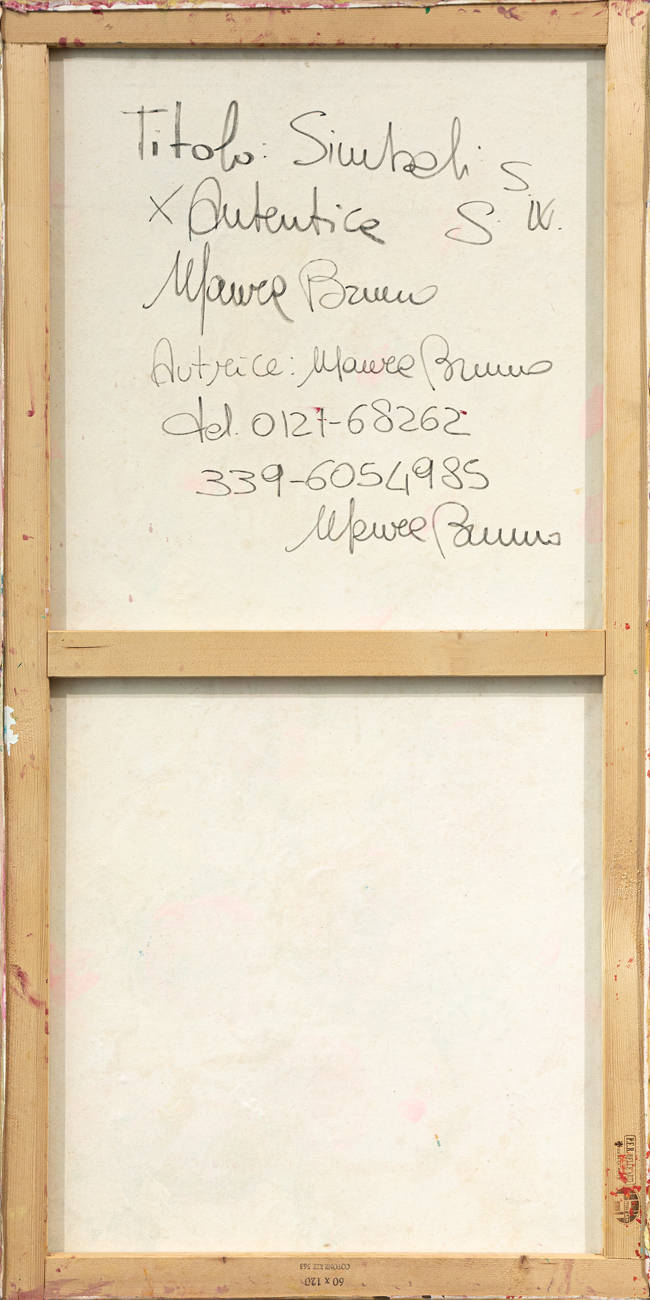 Titolo: Simboli S.
X Autentica S. IX.
Mawra Bruno
Autrice: Mawra Bruno
tel. 0127-68262
339-6054985
Mawra Bruno
P.E.R.
COTONE RTE 563
60 x 120